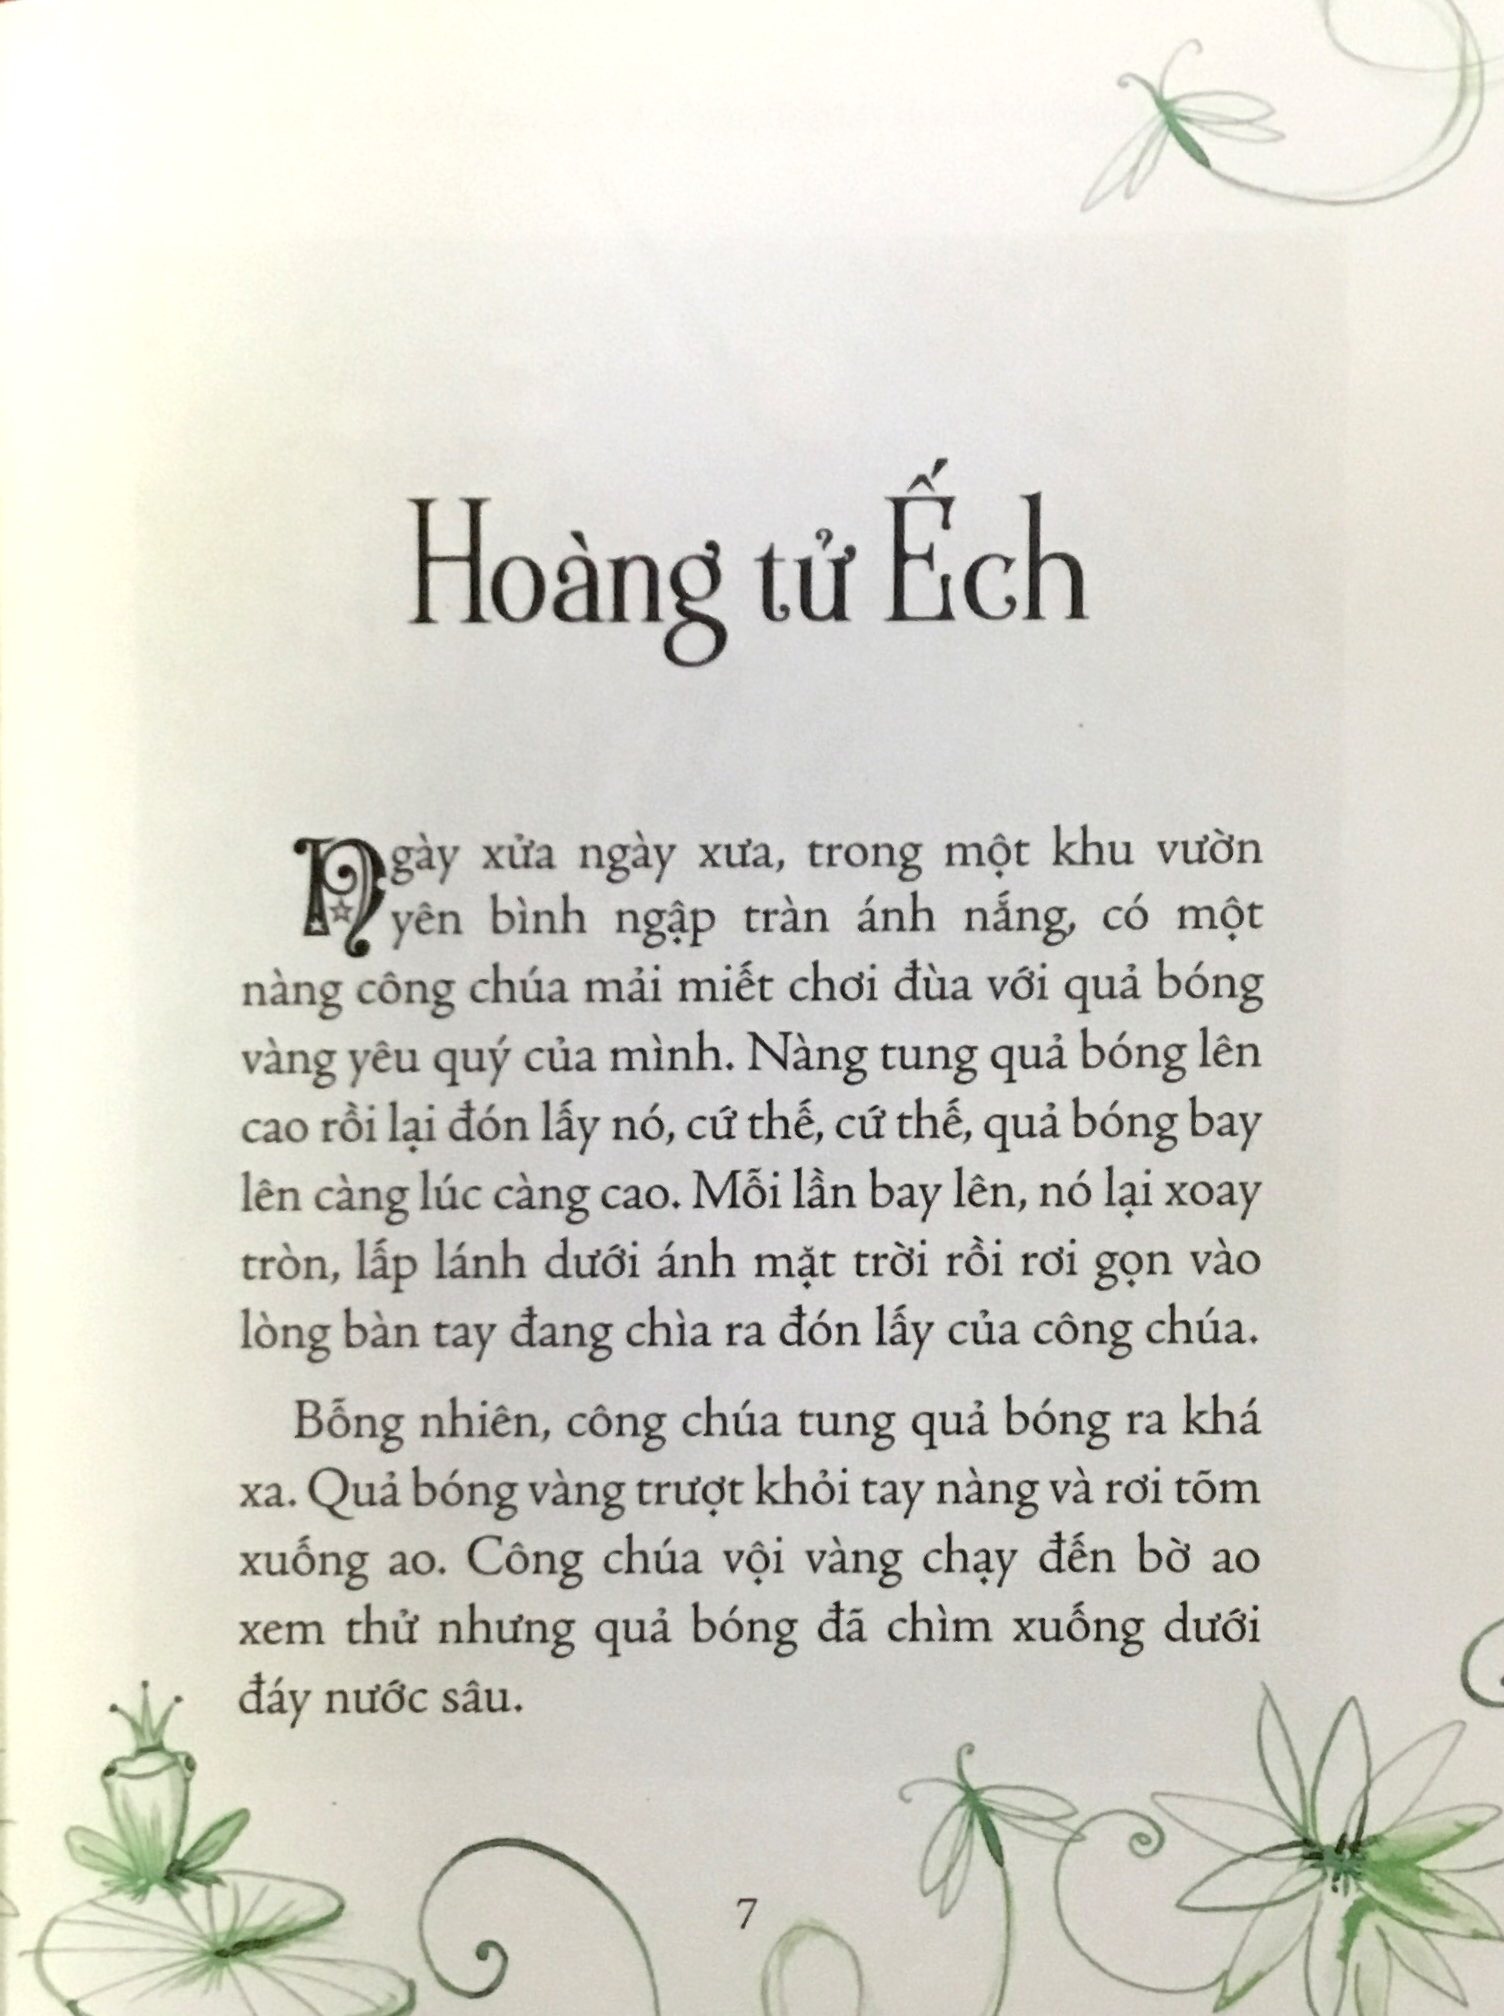 Hoàng tử Ếch
Ngày xửa ngày xưa, trong một khu vườn
yên bình ngập tràn ánh nắng, có một
nàng công chúa mải miết chơi đùa với quả bóng
vàng yêu quý của mình. Nàng tung quả bóng lên
cao rồi lại đón lấy nó, cứ thế, cứ thế, quả bóng bay
lên càng lúc càng cao. Mỗi lần bay lên, nó lại xoay
tròn, lấp lánh dưới ánh mặt trời rồi rơi gọn vào
lòng bàn tay đang chìa ra đón lấy của công chúa.
Bỗng nhiên, công chúa tung quả bóng ra khá
xa. Quả bóng vàng trượt khỏi tay nàng và rơi tõm
xuống ao. Công chúa vội vàng chạy đến bờ ao
xem thử nhưng quả bóng đã chìm xuống dưới
đáy nước sâu.
7